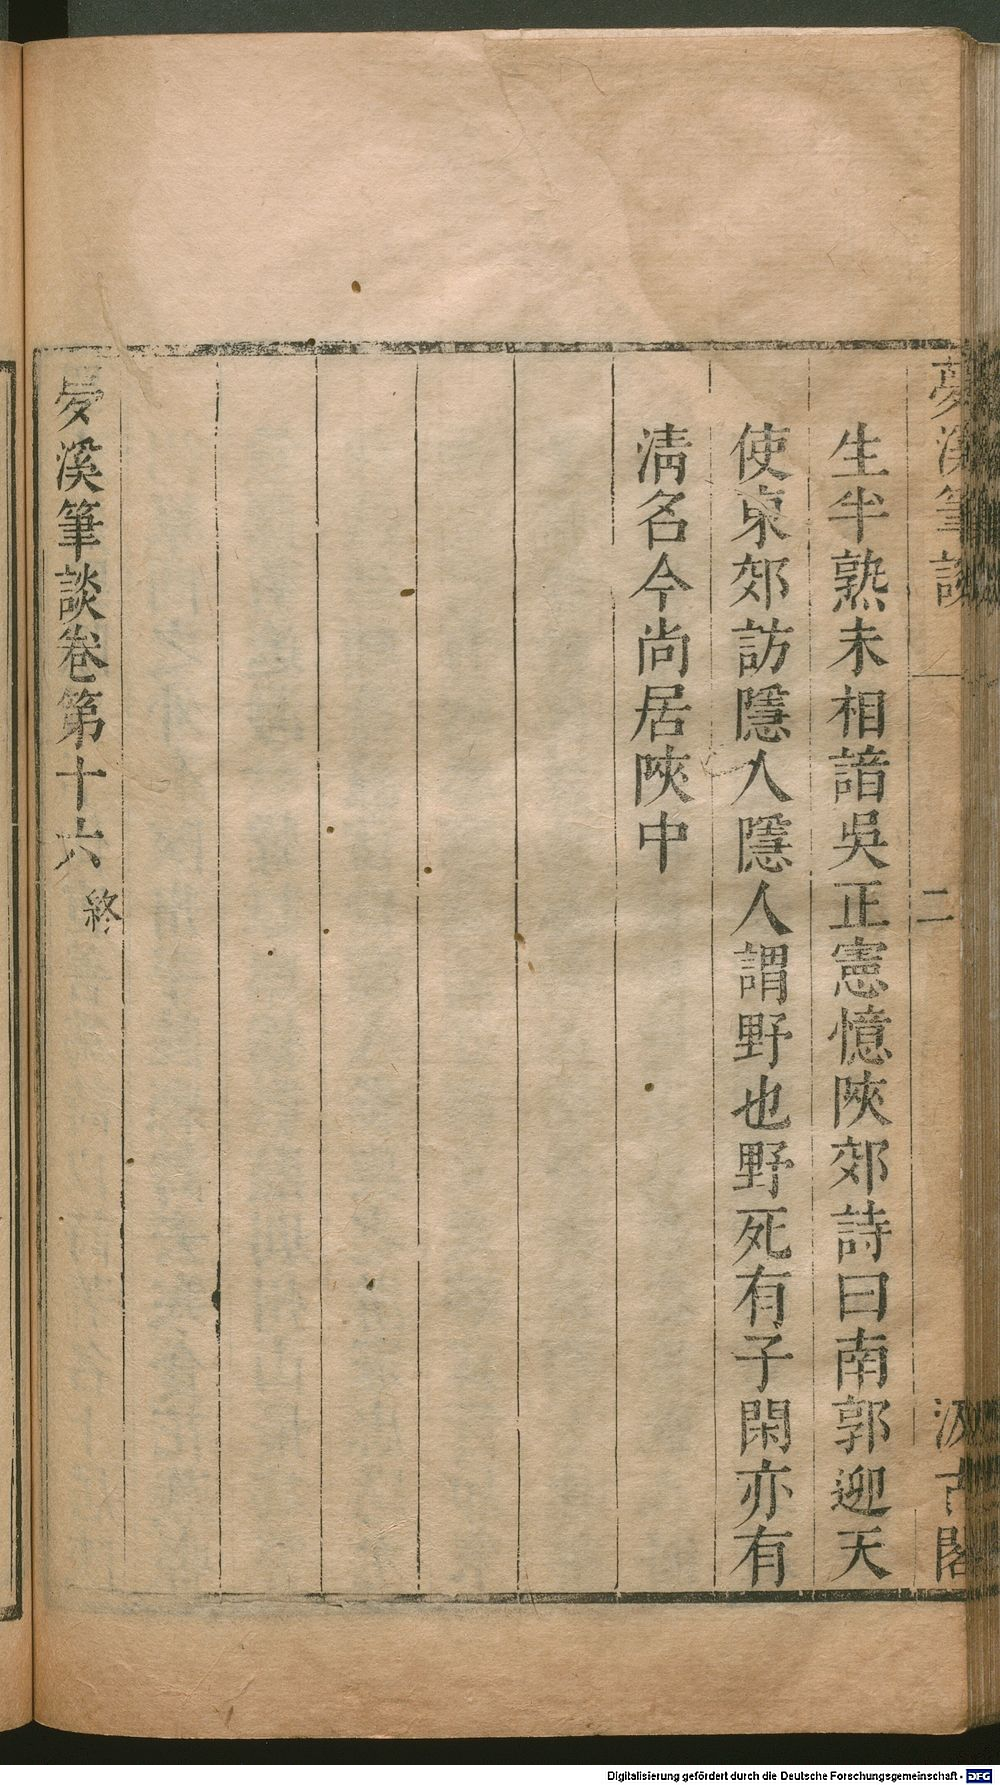 夢溪筆談
二
汲古閣
生半熟未相諳吳正憲憶陝郊詩曰南郭迎天
使東郊訪隱人隱人謂野也野死有子閑亦有
淸名今尚居陝中
夢溪筆談卷第十六
終
Digitalisierung gefördert durch die Deutsche Forschungsgemeinschaft - DFG